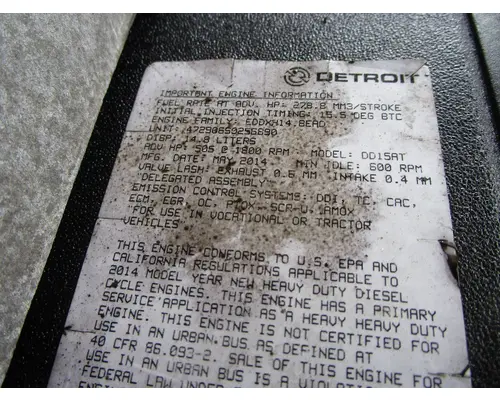 DETROIT
IMPORTANT ENGINE INFORMATION
FUEL RATE AT ADV. HP: 278.8 MM3/STROKE
INITIAL INJECTION TIMING: 15.5 DEG BTC
ENGINE FAMILY: EDDXH14.8EAD
UNIT: 472906S0256890
DISP: 14.8 LITERS
ADV HP: 505 @ 1800 RPM MODEL: DD15AT
MFG. DATE: MAY 2014 MIN IDLE: 600 RPM
VALVE LASH: EXHAUST 0.6 MM INTAKE 0.4 MM
DELEGATED ASSEMBLY
EMISSION CONTROL SYSTEMS: DDI, TC, CAC,
ECM, EGR, OC, PTOX, SCR-U, AMOX
FOR USE IN VOCATIONAL OR TRACTOR
VEHICLES
THIS ENGINE CONFORMS TO U.S. EPA AND
CALIFORNIA REGULATIONS APPLICABLE TO
2014 MODEL YEAR NEW HEAVY DUTY DIESEL
CYCLE ENGINES. THIS ENGINE HAS A PRIMARY
SERVICE APPLICATION AS A HEAVY HEAVY DUTY
ENGINE. THIS ENGINE IS NOT CERTIFIED FOR
USE IN AN URBAN BUS AS DEFINED AT
40 CFR 86.093-2. SALE OF THIS ENGINE FOR
USE IN AN URBAN BUS IS A VIOLATION
FEDERAL LAW UNDER